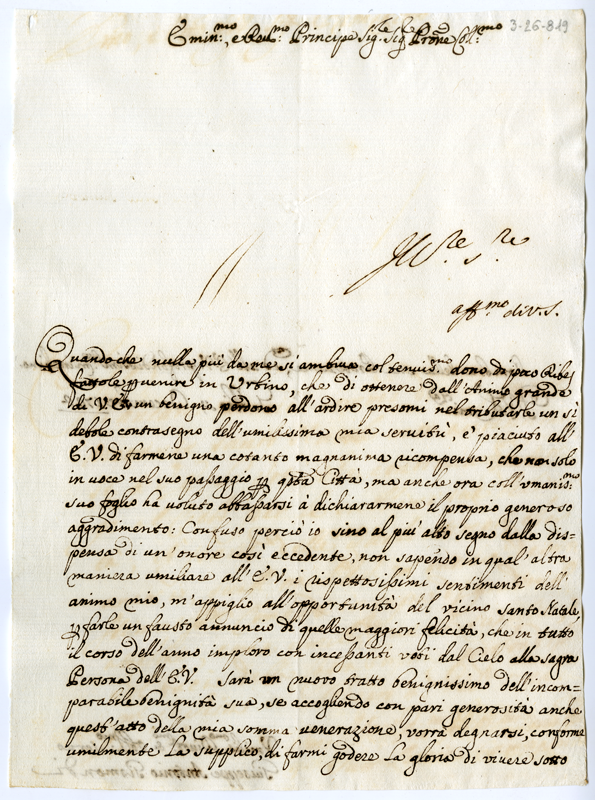 Emin.mo, e Reu.mo Principe Sig.re Sig.re Prone Col.mo
3-26-819
aff.mo di V.S.
Quando che nulla più da me si ambiva col tenuis.mo dono di poco Ribes
fattole pervenire in Urbino, che di ottenere dall'Animo grande
di V.E. un benigno perdono all'ardire presomi nel tributarle un sì
debole contrasegno dell'umilissima mia servitù, è piaciuto all'
E.V. di farmene una cotanto magnanima ricompensa, che non solo
in voce nel suo passaggio per q̃sta Città, ma anche ora coll'umaniss.mo
suo foglio ha voluto abbassarsi à dichiararmene il proprio generoso
aggradimento: Confuso perciò io sino al più alto segno dalla dis=
pensa di un'onore così eccedente, non sapendo in qual'altra
maniera umiliare all'E.V. i rispettosissimi sentimenti dell'
animo mio, m'appiglio all'opportunità del vicino Santo Natale,
per farle un fausto annuncio di quelle maggiori felicità, che in tutto
il corso dell'anno imploro con incessanti voti dal Cielo alla sagra
Persona dell'E.V. Sarà un nuovo tratto benignissimo dell'incom=
parabile benignità sua, se accogliendo con pari generosità anche
quest'atto della mia somma venerazione, vorrà degnarsi, conforme
umilmente La supplico, di farmi godere La gloria di vivere sotto